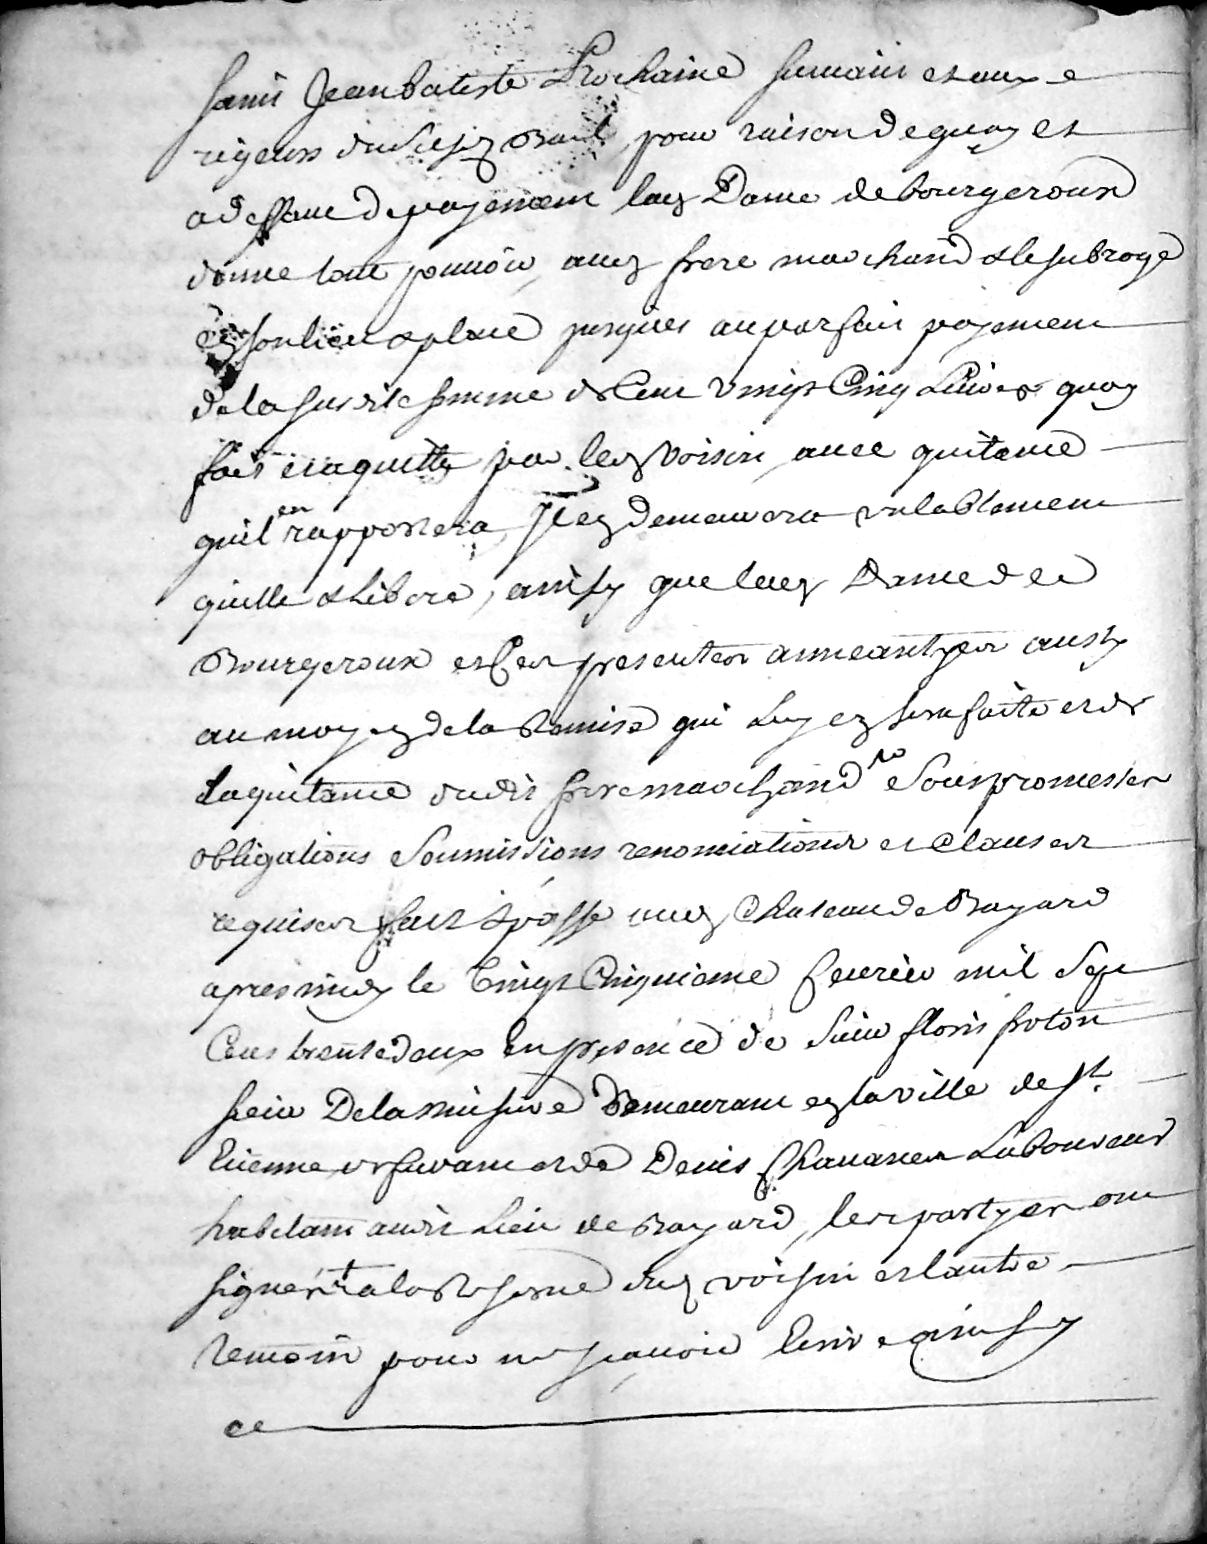 saint Jean batiste prochaine suivant et aux e
rigeurs du susd bail pour raison de quoy et
a deffaut de payement lad Dame de bourgeroux
donne tout pouvoir aud frere marchand & le subroge
en son lieu & place jusques au parfait payement
de la susdite somme de Cent vingt Cinq Livres quoy
fait et aquitte par led voisin avec quitance
quil en rapportera, il en demeurera valablement
quitte & libere, ainsy que lad Dame de
Bourgeroux et Ces presentes anneantyes ausy
au moyen de la Remise qui luy en sera faitte et de
laquitance dudit frere marchand Sous promesses
obligations Soumissions renonciations et Clauses
requises fait & passé aud Chateau de Bayard
apres midy le Vingt Cinquieme fevrier mil Sept
Cens trente deux En presence de Sieur floris froton
sieur Delamusure Demeurant en la ville de St
Etienne et de Denis Chavanes Laboureur
habitant audit Lieu de Bayard, les partyes ont
signé a la Reserve dud voisin et lautre
temoin pour ne sçavoir Ecrire ainsy
ce